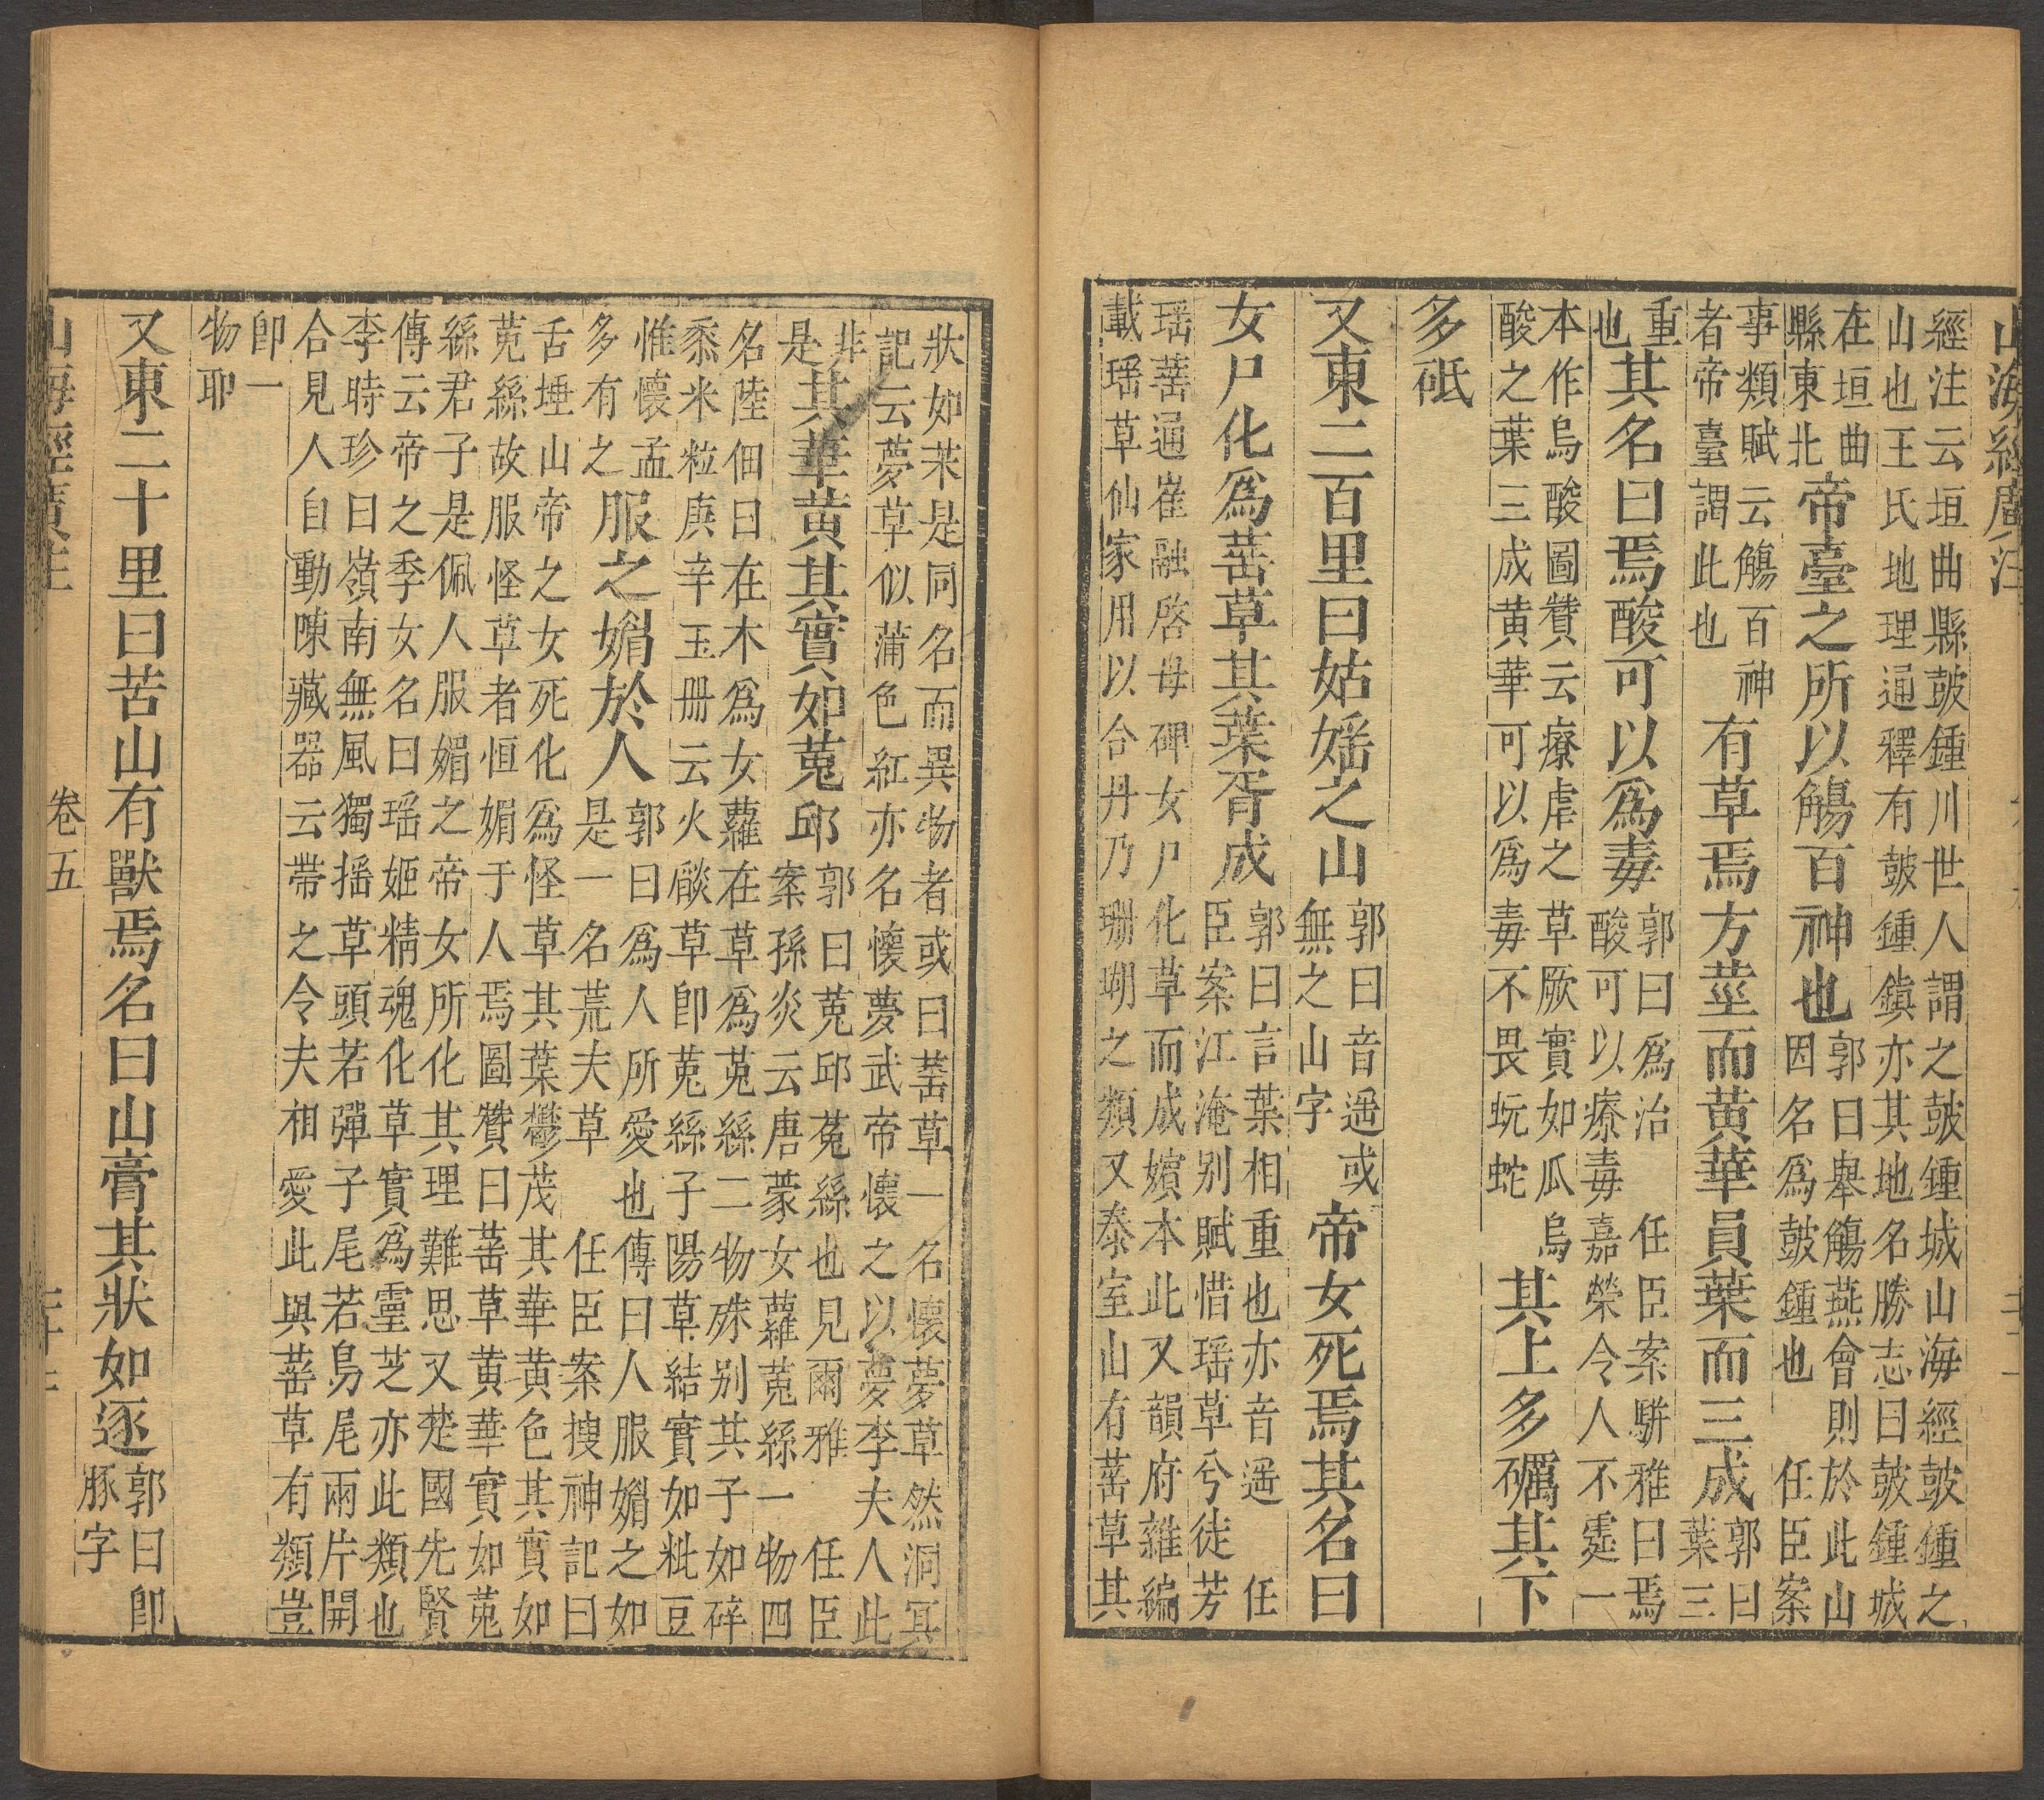 山海經廣注
經注云垣曲縣鼓鍾川世人謂之鼓鍾城山海經鼓鍾之
山也王氏地理通釋有鼓鍾鎮亦其地名勝志曰鼓鍾城
在垣曲
縣東北
帝臺之所以觴百神也
郭曰舉觴燕會則於此山
因名為鼓鍾也 任臣案
事類賦云觴百神
者帝臺謂此也
有草焉方莖而黄華員葉而三成
郭曰
葉三
重
也
其名曰焉酸可以爲毒
郭曰為治 任臣案駢雅曰焉
酸可以療毒 嘉榮令人不霆一
本作烏酸圖贊云療虐之草厥實如瓜烏
酸之葉三成黄華可以為毒不畏蚖蛇
其上多礪其下
多砥
又東二百里曰姑媱之山
郭曰音遥或
無之山字
帝女死焉其名曰
女尸化爲䔄草其葉胥成
郭曰言葉相重也亦音遥 任
臣案江淹别賦惜瑶草兮徒芳
瑶䔄通崔融啓母碑女尸化草而成嬪本此又韻府雜編
載瑶草仙家用以合丹乃珊瑚之類又泰室山有䔄草其
狀如茉是同名而異物者或曰䔄草一名懷夢草然洞冥
記云夢草似蒲色紅亦名懷夢武帝懷之以夢李夫人此
非
是
其華黄其實如菟邱
郭曰菟邱菟絲也見爾雅 任臣
案孫炎云唐蒙女蘿菟絲一物四
名陸佃曰在木爲女蘿在草爲菟絲二物殊别其子如碎
黍米粒庚辛玉冊云火燄草即菟絲子陽草結實如粃豆
惟懷孟
多有之
服之媚於人
郭曰爲人所愛也傳曰人服媚之如
是一名荒夫草 任臣案搜神記曰
舌埵山帝之女死化為怪草其葉鬱茂其華黄色其實如
菟絲故服怪草者恒媚于人焉圖贊曰䔄草黄華實如菟
絲君子是佩人服媚之帝女所化其理難思又楚國先賢
傳云帝之季女名曰瑶姬精魂化草實爲靈芝亦此類也
李時珍曰嶺南無風獨摇草頭若彈子尾若鳥尾兩片開
合見人自動陳藏器云帶之令夫相愛此與䔄草有類豈
即一
物耶
又東二十里曰苦山有獸焉名曰山膏其狀如逐
郭曰即
豚字
山海經廣注
卷五